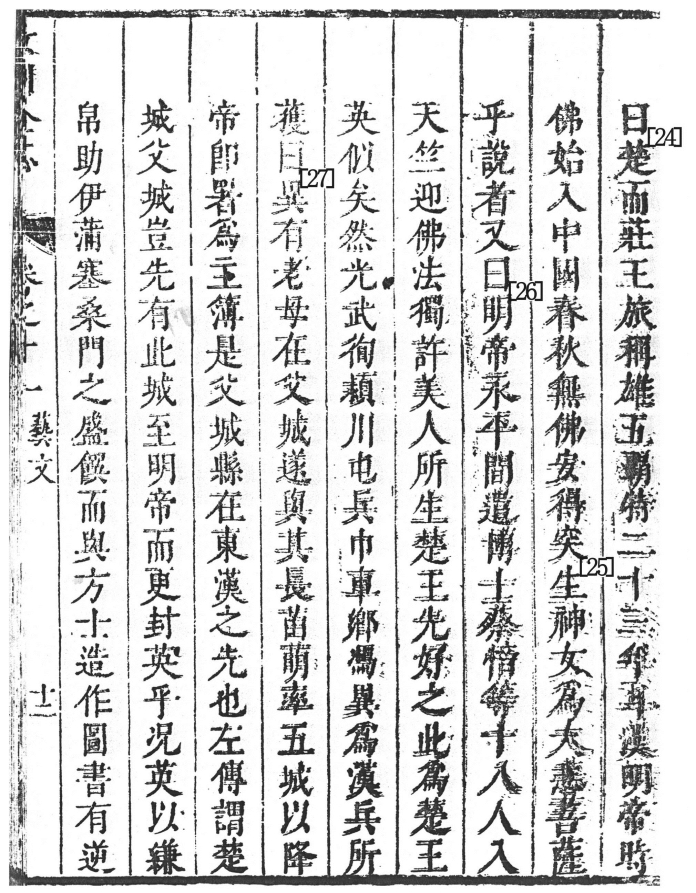 曰楚而莊王旅稱雄五霸特二十三年耳漢明帝時
佛始入中國春秋無佛安得突生神女為大慈菩薩
乎說者又曰明帝永平間遣博士蔡愔等十八人入
天竺迎佛法獨許美人所生楚王先好之此為楚王
英似矣然光武徇潁川屯兵巾車鄉馮異為漢兵所
獲曰異有老母在父城遂與其長苗萌率五城以降
帝卽署為主簿是父城縣在東漢之先也左傳謂楚
城父城豈先有此城至明帝而更封英乎況英以縑
帛助伊蒲塞桑門之盛饌而與方士造作圖書有逆
卷之十一 藝文 十二
[24]
[25]
[26]
[27]